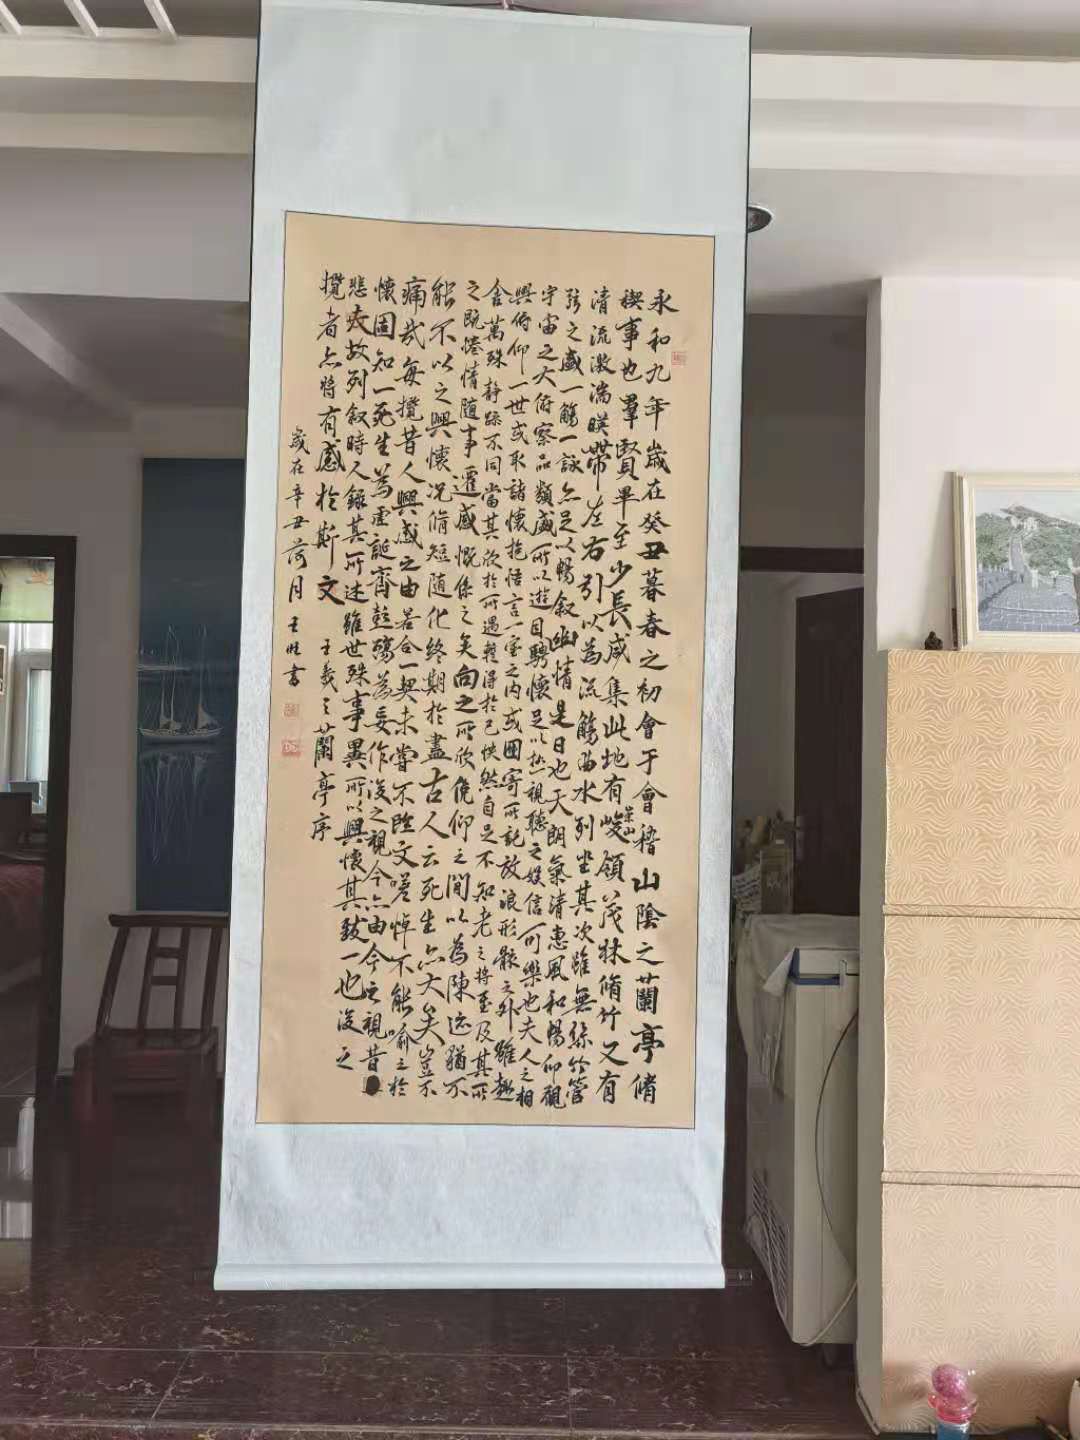 永和九年歲在癸丑暮春之初會于會稽山陰之蘭亭脩
稧事也羣賢畢至少長咸集此地有崇山峻領茂林脩竹又有
清流激湍暎帶左右引以為流觴曲水列坐其次雖無絲竹管
弦之盛一觴一詠亦足以暢叙幽情是日也天朗氣清惠風和暢仰觀
宇宙之大俯察品類盛所以遊目騁懷足以極視聽之娛信可樂也夫人之相
與俯仰一世或取諸懷抱悟言一室之內或因寄所託放浪形骸之外雖趣
舍萬殊静躁不同當其欣於所遇蹔得於己怏然自足不知老之將至及其所
之既惓情随事遷感慨係之矣向之所欣俛仰之閒以為陳迹猶不
能不以之興懷況脩短随化終期於盡古人云死生亦大矣豈不
痛哉每攬昔人興感之由若合一契未嘗不臨文嗟悼不能喻之於
懷固知一死生為虛誕齊彭殤為妄作後之視今亦由今之視昔
悲夫故列叙時人錄其所述雖世殊事異所以興懷其致一也後之
攬者亦將有感於斯文 王羲之蘭亭序
歲在辛丑荷月王旺書